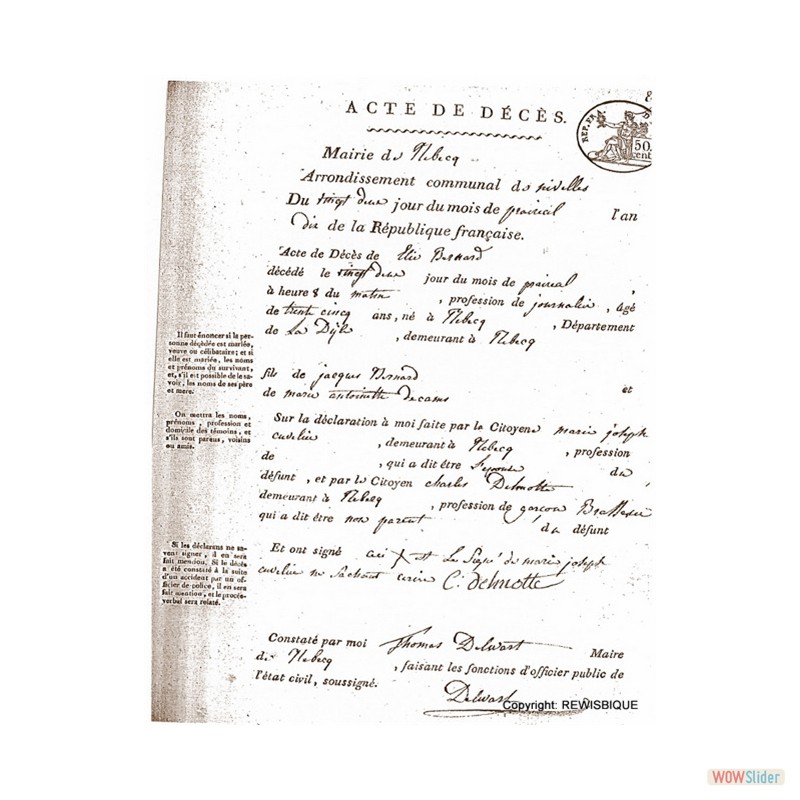 8
ACTE DE DÉCÈS.
REP. FRA.
50.
cent
Mairie de Rebecq
Arrondissement communal de nivelles
Du vingt deux jour du mois de prairial l'an
dix de la République française.
Acte de Décès de Elie Bernard
décédé le vingt deux jour du mois de prairial ,
à heure 8 du matin , profession de journalier , âgé
de trente cinq ans, né à Rebecq , Département
de La Dyle , demeurant à Rebecq
Il faut énoncer si la per-
sonne décédée est mariée,
veuve ou célibataire; et si
elle est mariée, les noms
et prénoms du survivant,
et, s'il est possible de le sa-
voir, les noms de ses père
et mere.
fils de jacques Bernard
et
de marie antoinette decams
On mettra les noms,
prénoms, profession et
domicile des témoins, et
s'ils sont parens, voisins
ou amis.
Sur la déclaration à moi faite par le Citoyenne marie joseph
cuvelier , demeurant à Rebecq , profession
de , qui a dit être du
défunt, et par le Citoyen charles Delmotte
demeurant à Rebecq , profession de garçon Brasseur
qui a dit être non parent du défunt
Si les déclarans ne sa-
vent signer, il en sera
fait mention. Si le décès
a été constaté à la suite
d'un accident par un of-
ficier de police, il en sera
fait mention, et le procès-
verbal sera relaté.
Et ont signé ceci X est Le Signé de marie joseph
cuvelier ne sachant écrire C. delmotte
Constaté par moi Thomas Delwart Maire
de Rebecq , faisant les fonctions d'officier public de
l'état civil, soussigné.
Delwart
Copyright: REWISBIQUE
WOWSlider